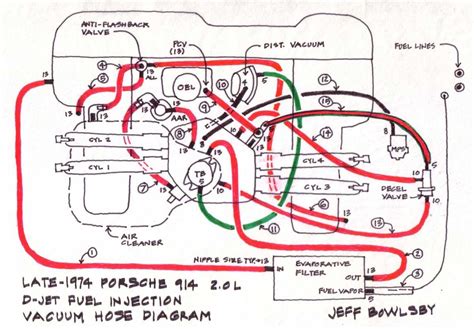 ANTI-FLASHBACK
VALVE
PCV
(13)
DIST. VACUUM
FUEL LINES
13
ALL
OBL
AAR
CYL 2
CYL 1
CYL 4
CYL 3
TB
5
MPS
DECEL
VALVE
AIR
CLEANER
NIPPLE SIZE TYP. #13
IN
EVAPORATIVE
FILTER
OUT
FUEL VAPOR
LATE-1974 PORSCHE 914 2.0L
D-JET FUEL INJECTION
VACUUM HOSE DIAGRAM
JEFF BOWLSBY